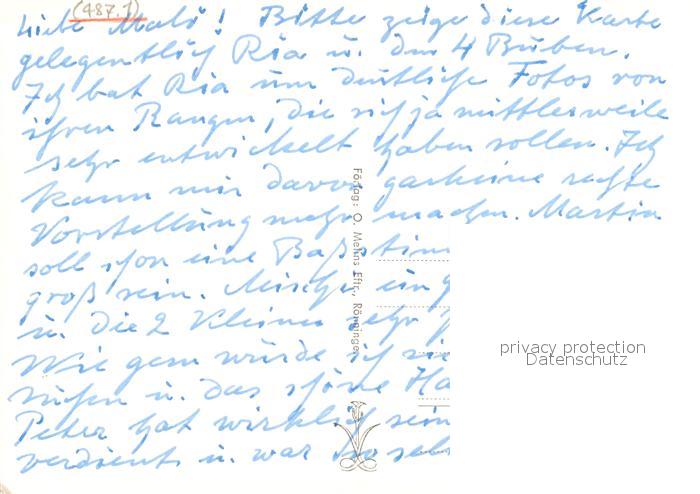 (487.1)
Liebe Mali! Bitte zeige diese Karte
gelegentlich Ria u. den 4 Buben.
Ich bat Ria um deutliche Fotos von
ihren Rangen, die sich ja mittlerweile
sehr entwickelt haben sollen. Ich
kann mir davon garkeine rechte
Vorstellung mehr machen. Martin
soll schon eine Baßstim
groß sein. Mischa ein g
u. die 2 Kleinen sehr
Wie gern würde ich
u. das schöne Ha
Peter hat wirklich sein
verdient u. war so seh
Förlag: O. Mehns Eftr., Rönninge.
privacy protection
Datenschutz